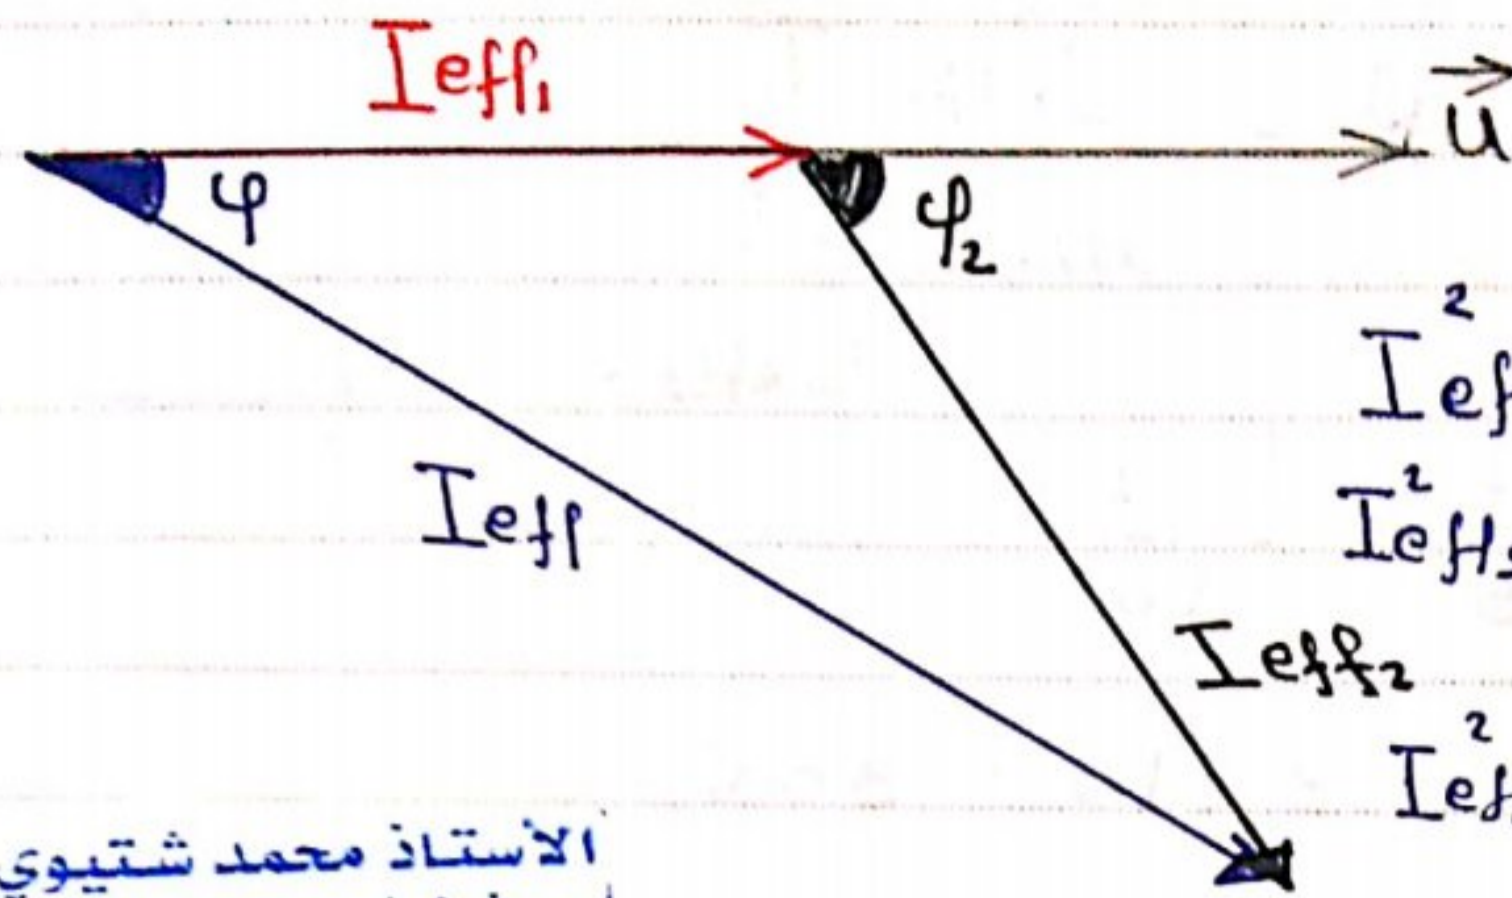 Ieff₁
u
φ
φ₂
I²ef
Ieff
I²eff
Ieff₂
I²ef
الأستاذ محمد شتيوي